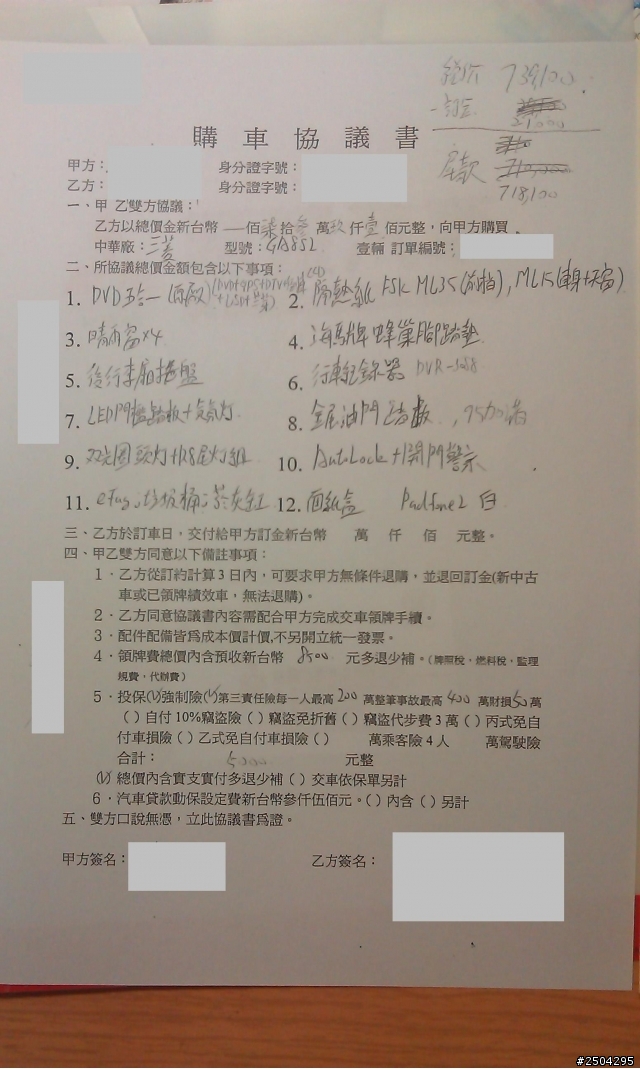 總價 739,100
-訂金 21,000
尾款
718,100
購車協議書
甲方： 身分證字號：
乙方： 身分證字號：
一、甲 乙雙方協議：
乙方以總價金新台幣 一佰柒拾參萬玖仟壹佰元整，向甲方購買
中華廠：三菱 型號：GA8S2 壹輛 訂單編號：
二、所協議總價金額包含以下事項：
1. DVD五合一(原廠)
2. 隔熱紙 FSK ML35(前檔)，ML15(車身+天窗)
3. 晴雨窗x4
4. 海馬牌蜂巢腳踏墊
5. 後行李廂托盤
6. 行車紀錄器 DVR-
7. LED門檻踏板+氣氛灯
8. 金屬油門踏板，95加滿
9. 頭灯+R8尾灯組
10. AutoLock+開門警示
11. eTag；垃圾桶；菸灰缸
12. 面紙盒 Padfone2 白
三、乙方於訂車日，交付給甲方訂金新台幣 萬 仟 佰 元整。
四、甲乙雙方同意以下備註事項：
1．乙方從訂約計算3日內，可要求甲方無條件退購，並退回訂金(新中古
車或已領牌績效車，無法退購)。
2．乙方同意協議書內容需配合甲方完成交車領牌手續。
3．配件配備皆爲成本價計價,不另開立統一發票。
4．領牌費總價內含預收新台幣 8500 元多退少補。(牌照稅，燃料稅，監理
規費，代辦費)
5．投保(V)強制險(V)第三責任險每一人最高200萬整筆事故最高400萬財損50萬
( )自付10%竊盜險( )竊盜免折舊( )竊盜代步費3萬( )丙式免自
付車損險( )乙式免自付車損險( ) 萬乘客險4人 萬駕駛險
合計： 5000 元整
(V)總價內含實支實付多退少補( )交車依保單另計
6．汽車貸款動保設定費新台幣參仟伍佰元。( )內含( )另計
五、雙方口說無憑，立此協議書爲證。
甲方簽名： 乙方簽名：
#2504295